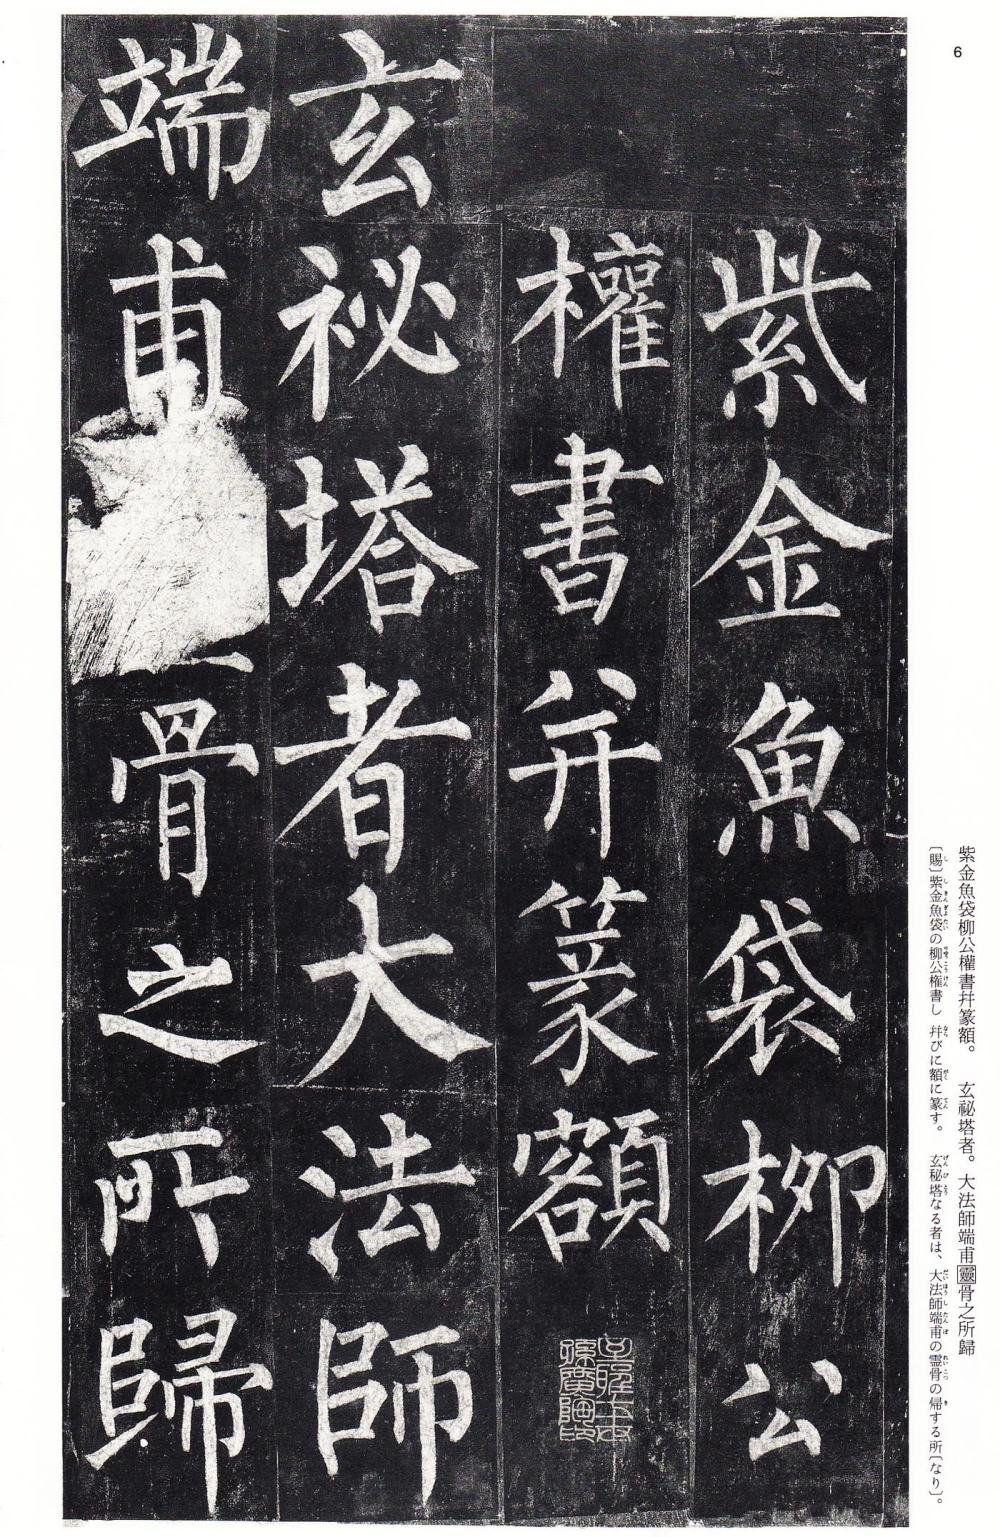 6
紫金魚袋柳公權書幷篆額。　玄祕塔者。大法師端甫靈骨之所歸
〔賜〕紫金魚袋の柳公権書し　幷びに額に篆す。　玄秘塔なる者は、大法師端甫の霊骨の帰する所〔なり〕。
紫金魚袋柳公
權書幷篆額
玄祕塔者大法師
端甫骨之所歸